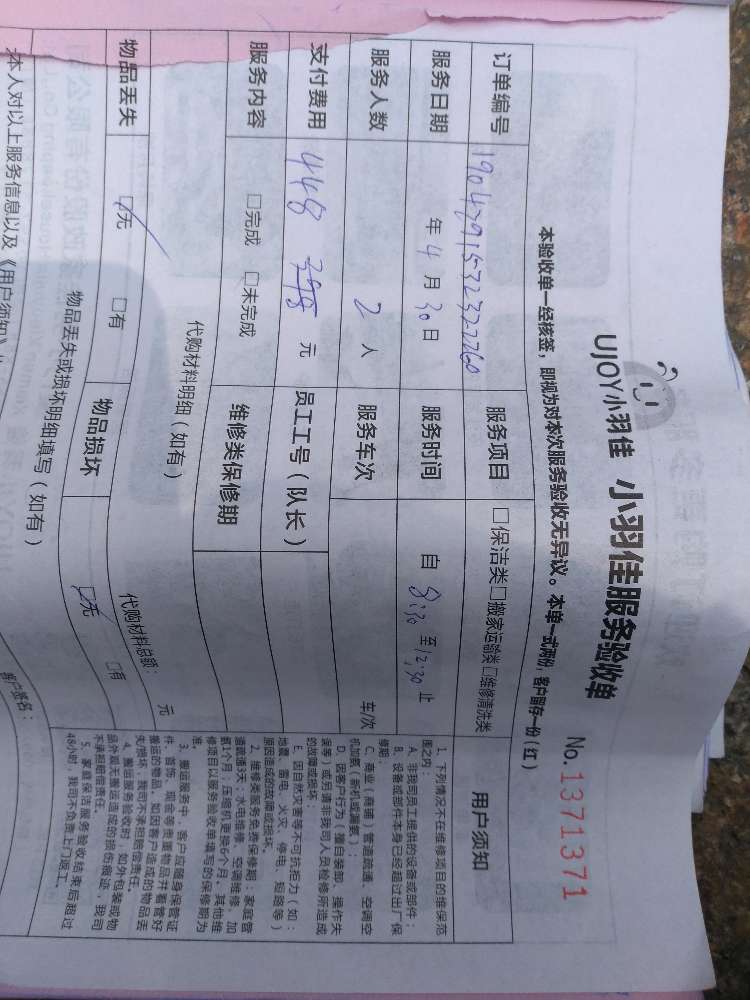 UJOY小羽佳 小羽佳服务验收单
No.1371371
本验收单一经核签，即视为对本次服务验收无异议。本单一式两份，客户留存一份（红）
订单编号 服务项目 □保洁类□搬家运输类□维修清洗类
服务日期 年4月30日 服务时间 自8:30至12:30止
服务人数 2人 服务车次 车/次
支付费用 448 元 员工工号（队长）
服务内容 □完成 □未完成 维修类保修期
代购材料明细（如有）
代购材料总额： 元
物品丢失 □无 □有 物品损坏 □无 □有
物品丢失或损坏明细填写（如有）
本人对以上服务信息以及《用户须知》
客户签名：
用户须知
1、下列情况不在维修项目的维保范
围之内：
A、非我司员工提供的设备或部件；
B、设备或部件本身已经超过出厂保
修期；
C、商业（商铺）管道疏通、空调空
机加氟（新机或漏氟）；
D、因客户行为（擅自装卸、操作失
误等）或另请非我司人员检修所造成
的故障或损坏；
E、因自然灾害等不可抗拒力（如：
地震、雷电、火灾、停电、短路等）
原因造成的故障或损坏。
2、维修类服务免费保修期：家庭管
道疏通3天；水电维修、空调维修、加
氟1个月；压缩机更换6个月。其他维
修项目以服务验收单填写的保修期为
准。
3、搬运服务中，客户应随身保管证
件、首饰、现金等贵重物品并看管好
搬运的物品，如因客户造成的物品丢
失/损坏，我司不承担赔偿责任。
4、搬运服务验收时，如外包装或物
品外观无搬运造成的损伤痕迹，我司
不承担赔偿责任。
5、家庭保洁服务验收结束后超过
48小时，我司不负责上门返工。